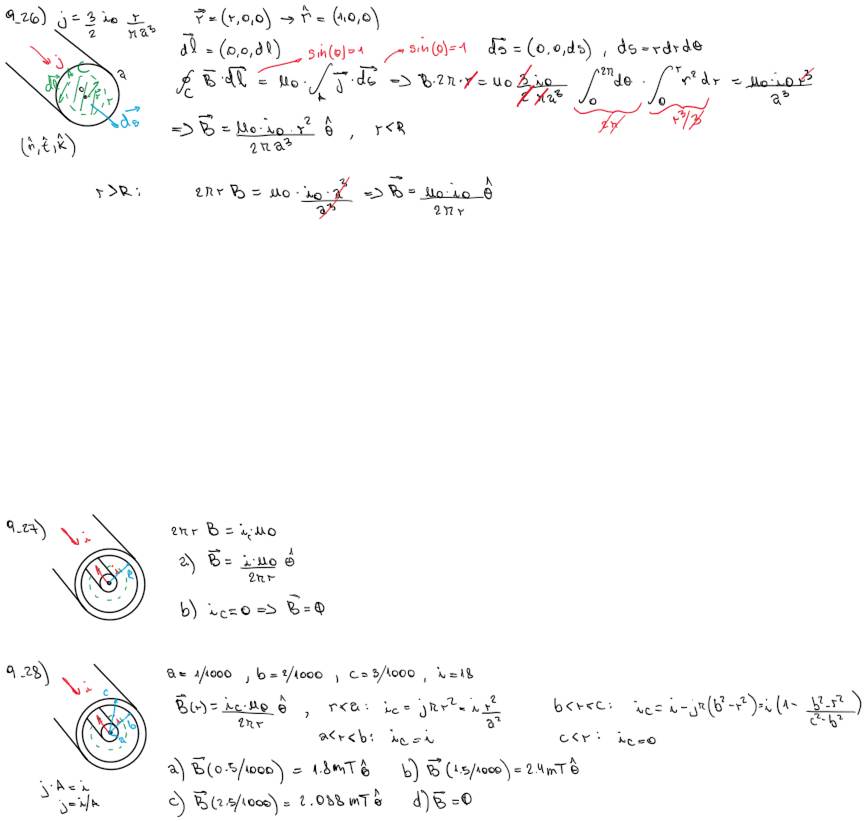 9-26) j = 3/2 i₀ r/πa³    r⃗ = (r,0,0) → r̂ = (1,0,0)
dl⃗ = (0,0,dl)    sin(θ)=1    sin(θ)=1    ds⃗ = (0,0,ds) , ds = rdrdθ
j    C    a    ∮_C B⃗·dl⃗ = μ₀·∫_A j⃗·ds⃗ => B·2π·r = μ₀ 3/2 i₀/πa³ ∫₀^2π dθ · ∫₀^r r²dr = μ₀·i₀·r³/a³
dl⃗    r    ds⃗    2π    r³/3
(n̂,t̂,k̂)    => B⃗ = μ₀·i₀·r²/2πa³ θ̂ , r<R
r>R:    2πr B = μ₀·i₀·a³/a³ => B⃗ = μ₀·i₀/2πr θ̂
9-27)    i    2πr B = i_c μ₀
a) B⃗ = i·μ₀/2πr θ̂
b) i_c=0 => B⃗=0
9-28)    i    a = 1/1000 , b = 2/1000 , c = 3/1000 , i = 18
c    b    a    B⃗(r) = i_c·μ₀/2πr θ̂ , r<a: i_c = jπr² = i r²/a²    b<r<c: i_c = i - jπ(b²-r²) = i(1 - b²-r²/c²-b²)
a<r<b: i_c = i    c<r: i_c=0
a) B⃗(0.5/1000) = 1.8mT θ̂    b) B⃗(1.5/1000) = 2.4mT θ̂
j·A = i
j = i/A    c) B⃗(2.5/1000) = 2.088mT θ̂    d) B⃗=0